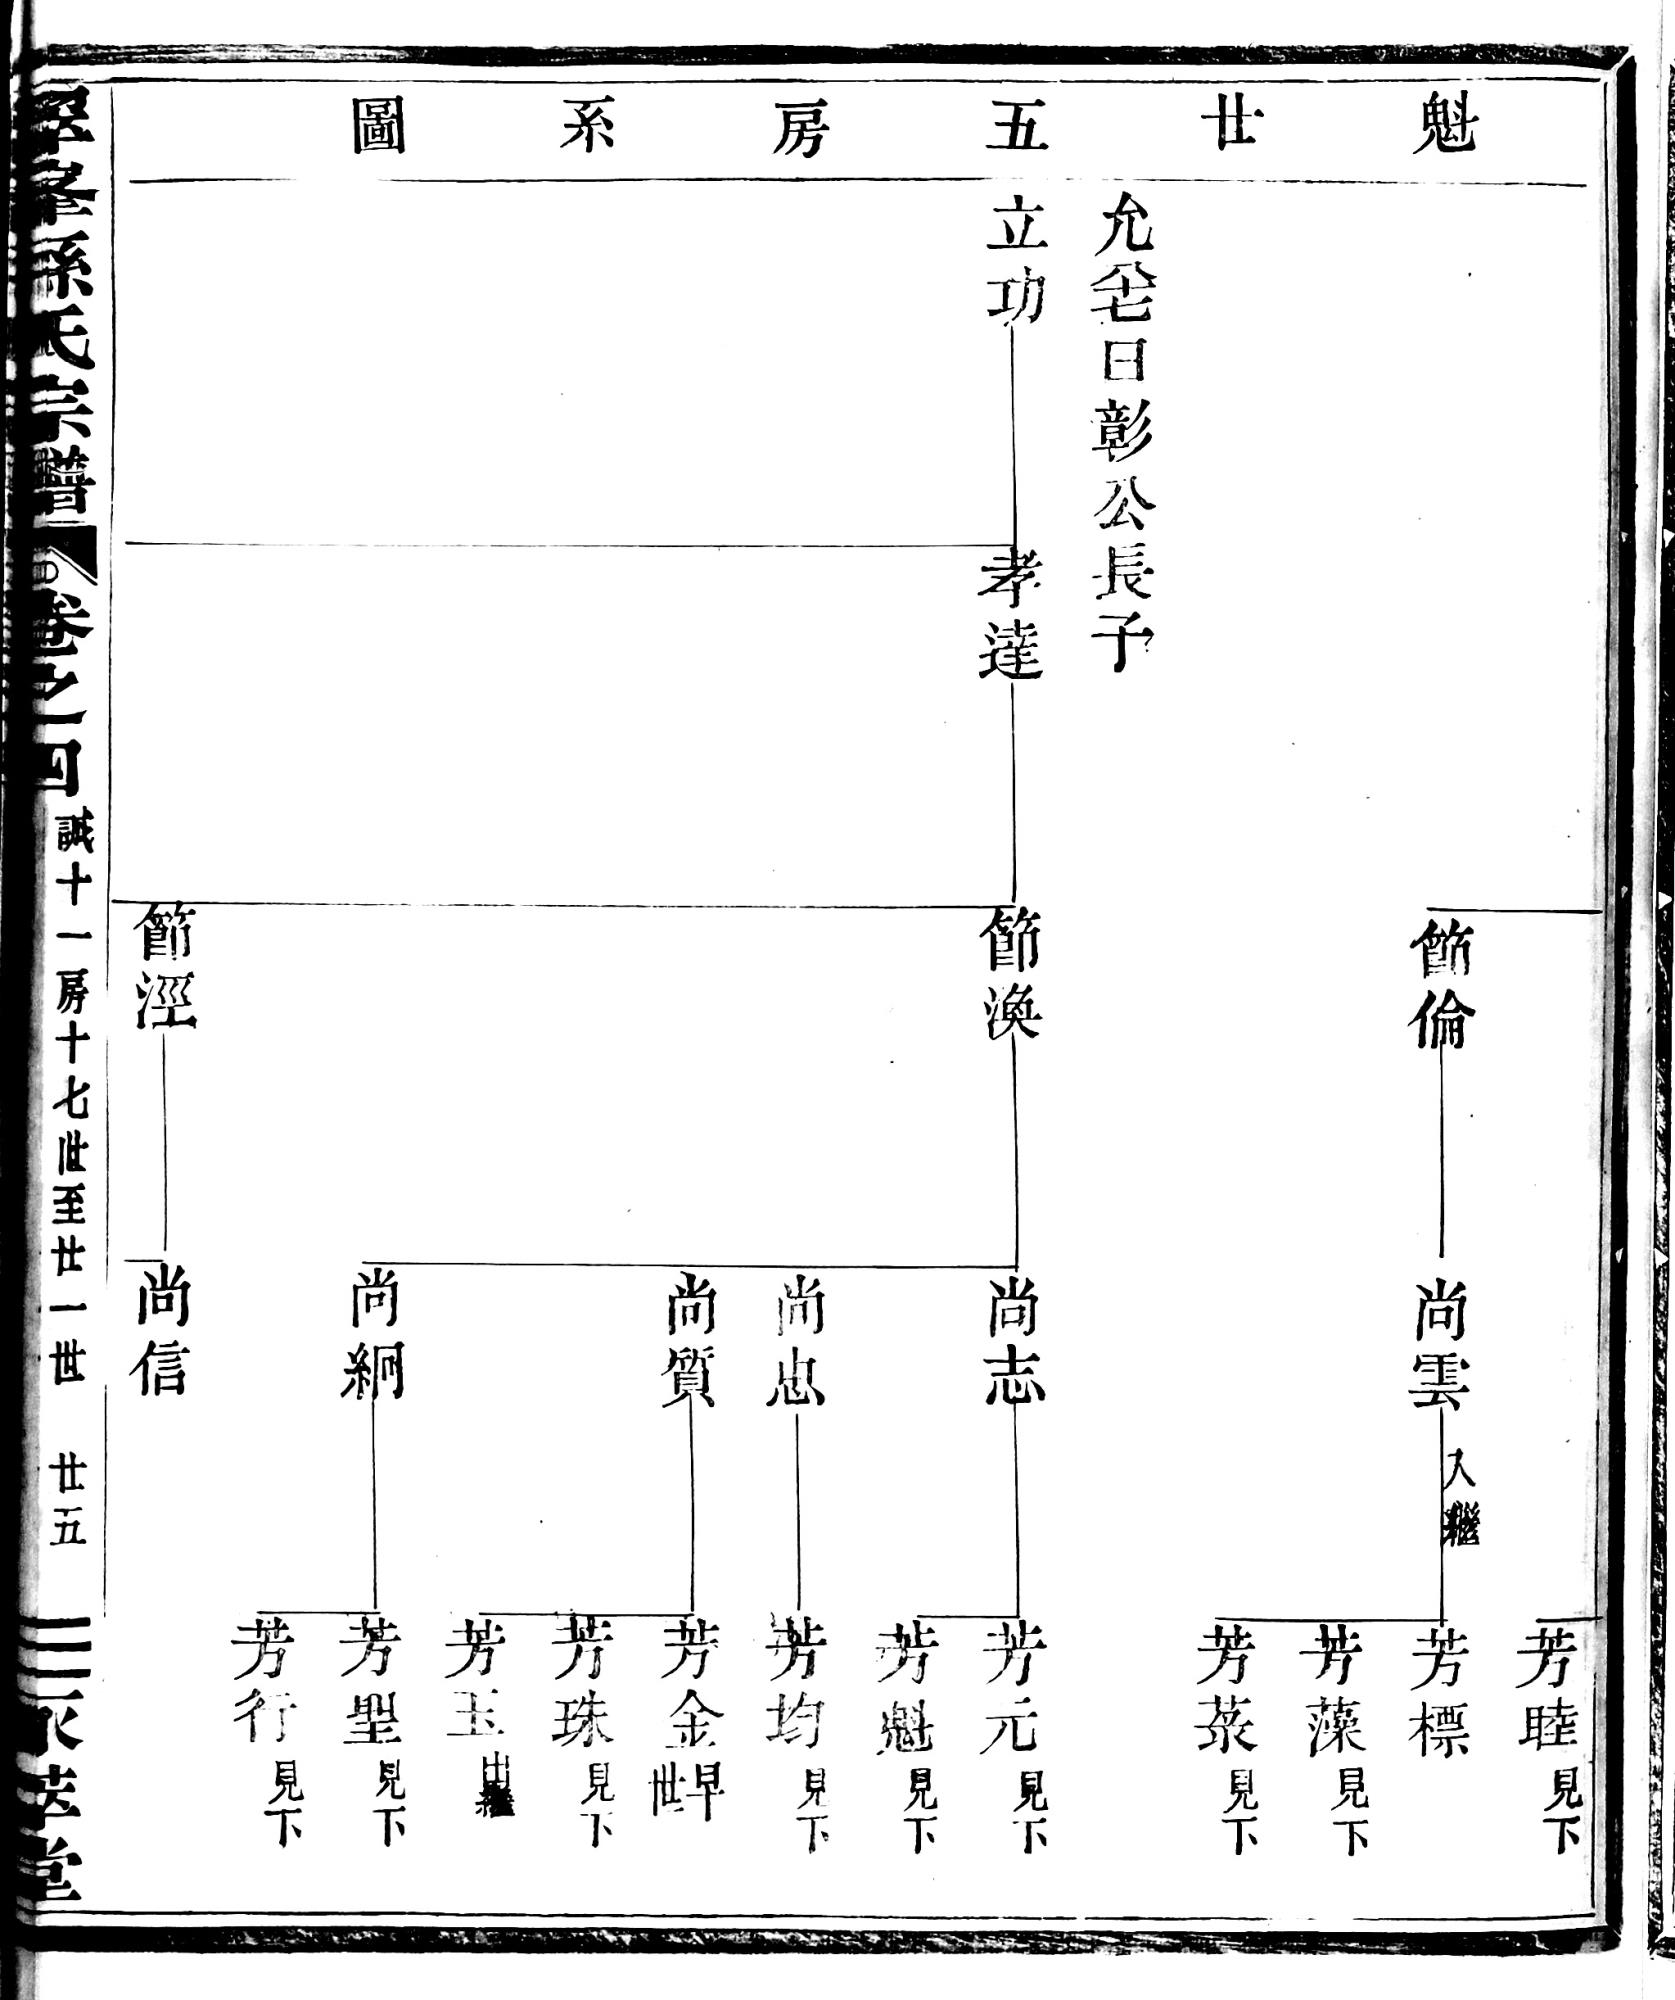 魁廿五房系圖
允
日彰公長子
立功
孝達
節倫
節渙
節涇
尚雲 入繼
尚志
尚忠
尚質
尚絅
尚信
芳睦 見下
芳標
芳藻 見下
芳棻 見下
芳元 見下
芳魁 見下
芳均 見下
芳金 早世
芳珠 見下
芳玉 出繼
芳聖 見下
芳行 見下
孫氏宗譜
卷之四
誠十一房十七世至廿一世
廿五
萃堂